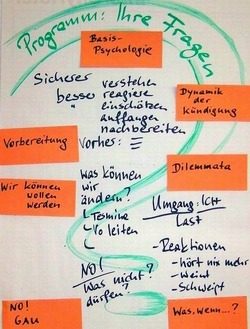 Programm: Ihre Fragen
Basis-
Psychologie
Sicherer verstehen
besser reagiere
" einschätzen
auffangen
nachbereiten
Dynamik
der
Kündigung
Vorbereitung
vorher:
Dilemmata
Wir können
wollen
werden
was können
wir
ändern?
Termine
Vo leiten
Umgang: ICH
LAST
- Reaktionen
- hört nix mehr
- weint
- Schweigt
NO!
Was nicht?
dürfen?
NO!
GAU
Was, wenn...?